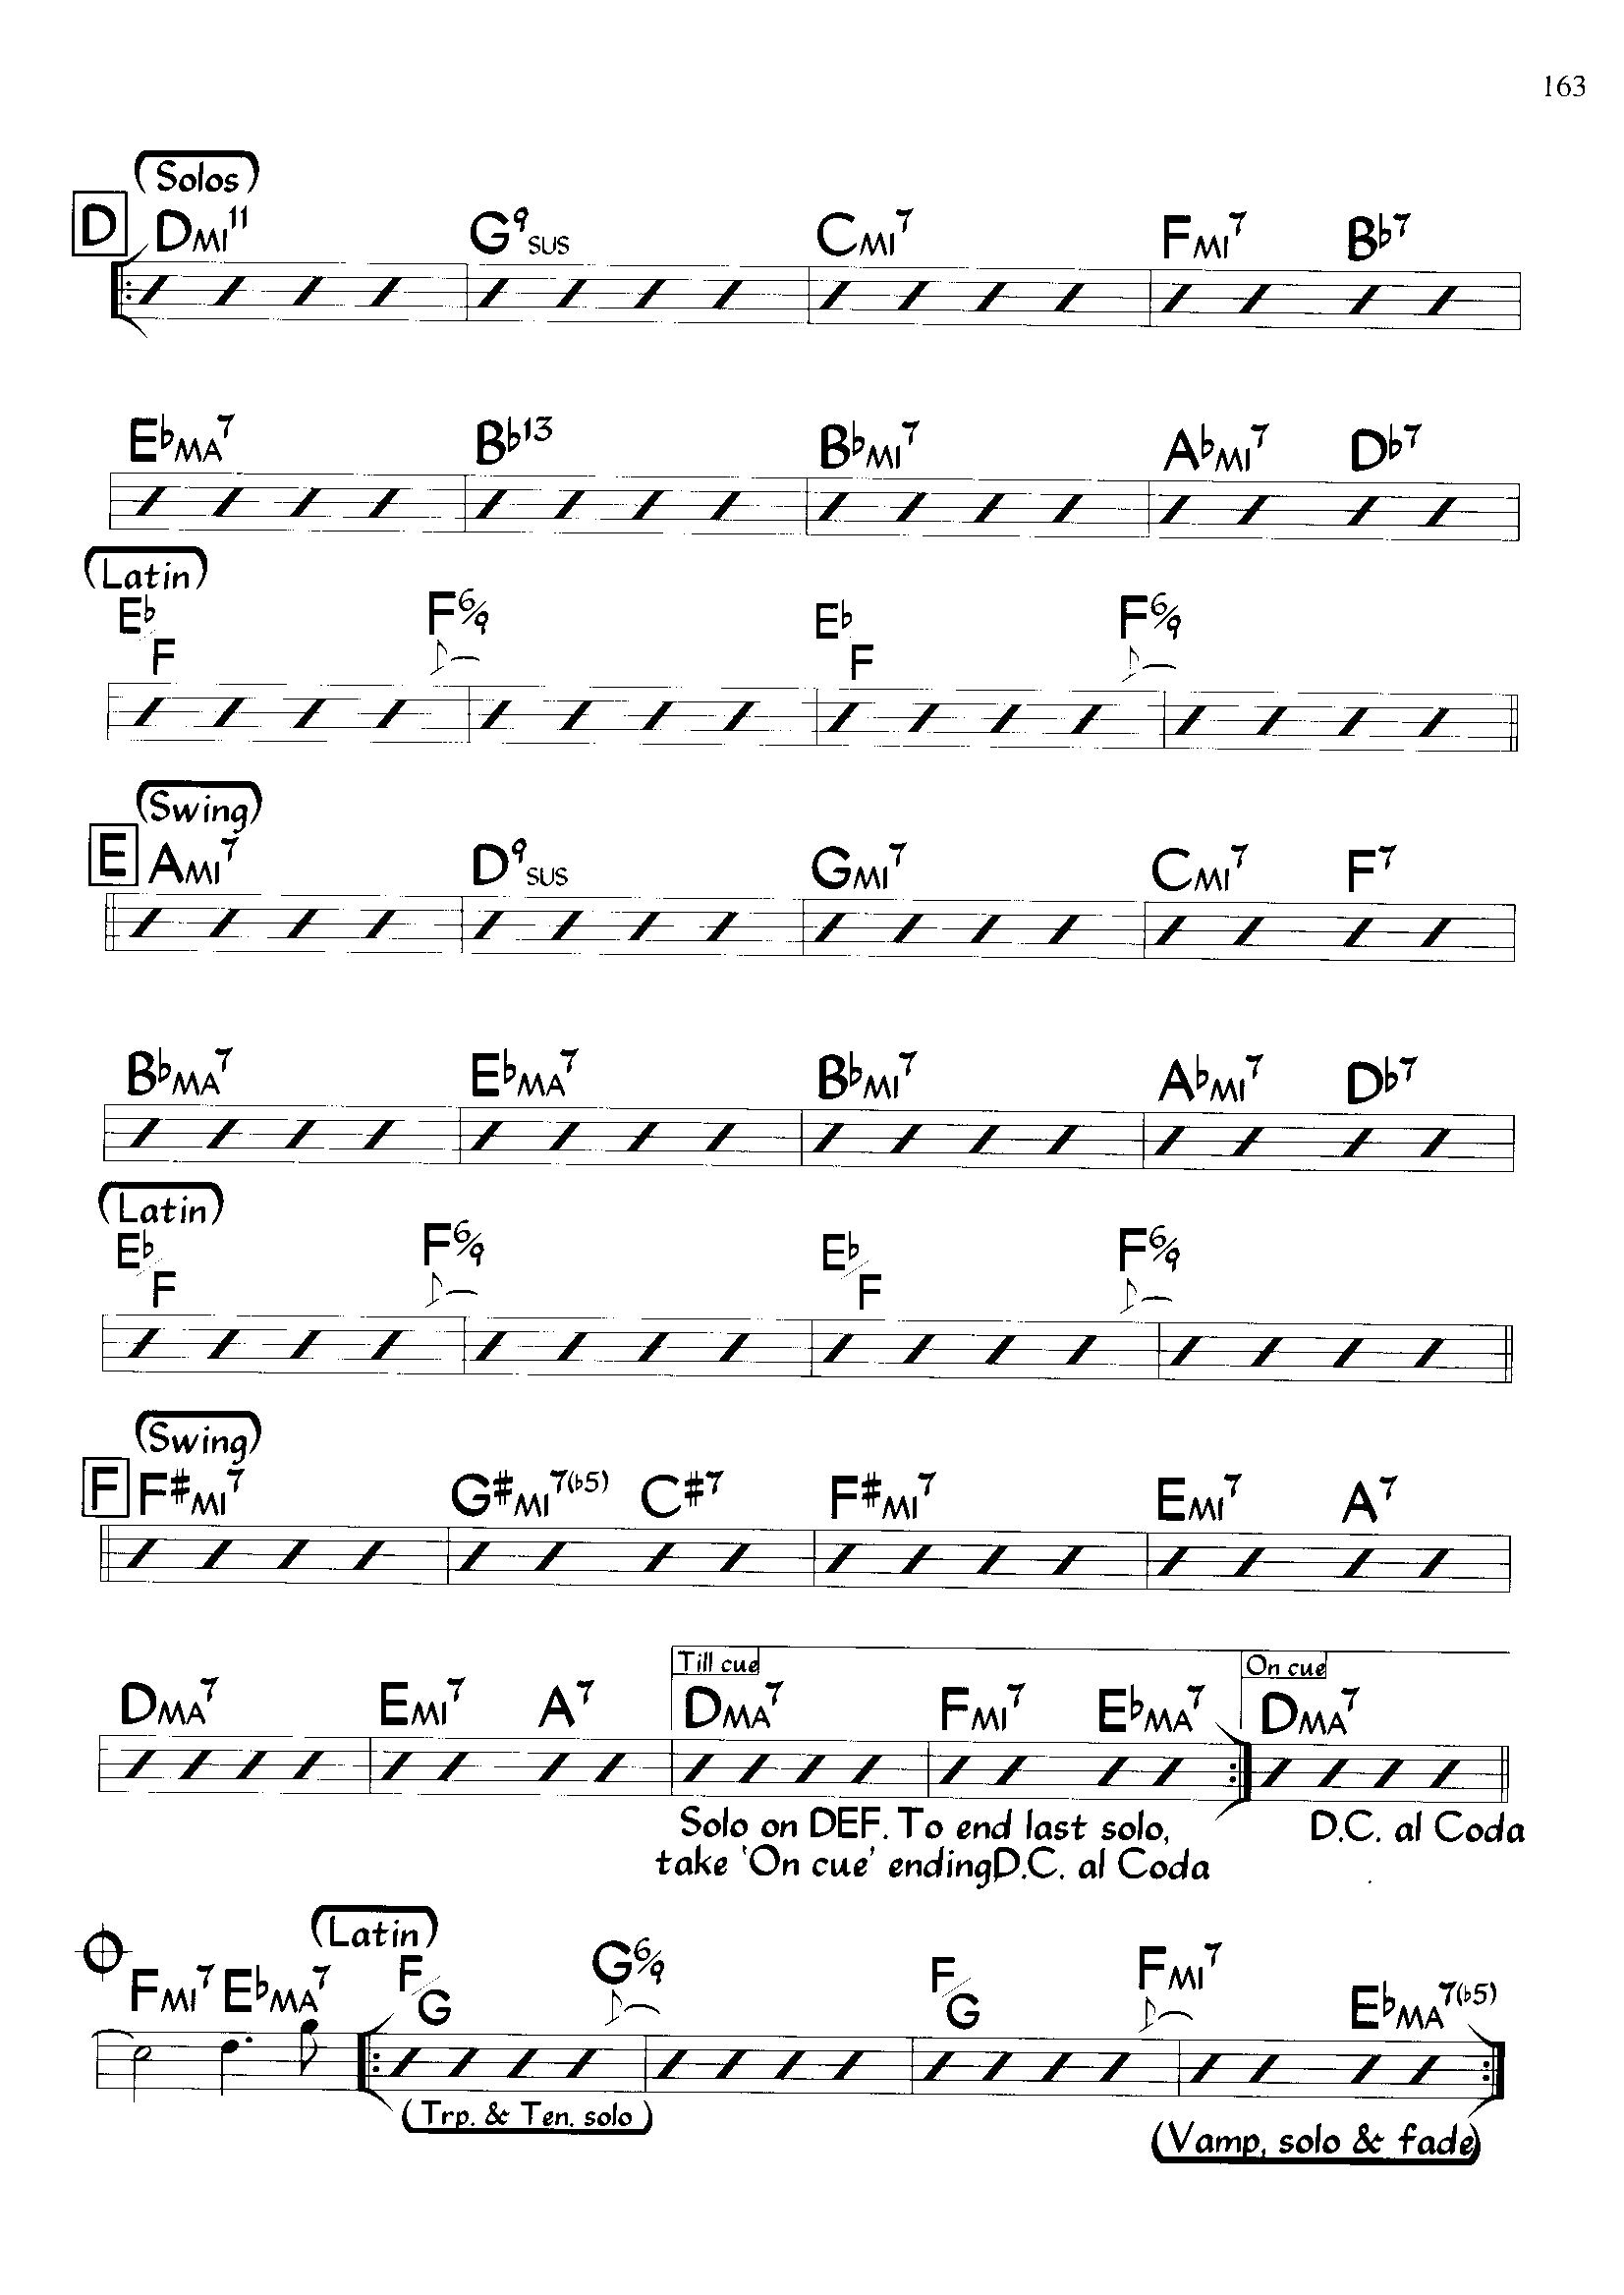 163
(Solos)
D DMI11 G9SUS CMI7 FMI7 B♭7
E♭MA7 B♭13 B♭MI7 A♭MI7 D♭7
(Latin)
E♭/F F6/9 E♭/F F6/9
(Swing)
E AMI7 D9SUS GMI7 CMI7 F7
B♭MA7 E♭MA7 B♭MI7 A♭MI7 D♭7
(Latin)
E♭/F F6/9 E♭/F F6/9
(Swing)
F F♯MI7 G♯MI7(♭5) C♯7 F♯MI7 EMI7 A7
Till cue On cue
DMA7 EMI7 A7 DMA7 FMI7 E♭MA7 DMA7
Solo on DEF. To end last solo, D.C. al Coda
take 'On cue' ending, D.C. al Coda
(Latin)
FMI7 E♭MA7 F/G G6/9 F/G FMI7 E♭MA7(♭5)
(Trp. & Ten. solo)
(Vamp, solo & fade)